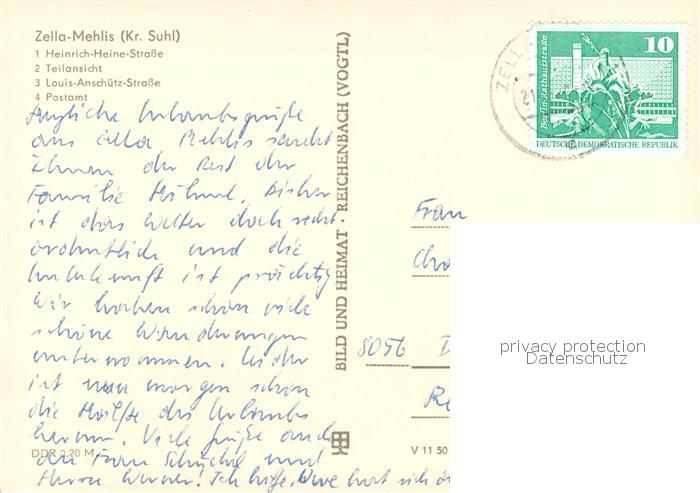 Zella-Mehlis (Kr. Suhl)
1 Heinrich-Heine-Straße
2 Teilansicht
3 Louis-Anschütz-Straße
4 Postamt
Herzliche Urlaubsgrüße
aus Zella Mehlis sendet
Ihnen der Rest der
Familie Bisher
ist das Wetter doch recht
ordentlich und die
Unterkunft ist prächtig
Wir haben schon viele
schöne Wanderungen
unternommen. Leider
ist nun morgen schon
die Hälfte des Urlaubs
herum. Viele Grüße auch
an Frau und
Herrn Werner! Ich hoffe, hat sich
DDR 0,20 M
BILD UND HEIMAT · REICHENBACH (VOGTL)
V 11 50
ZELL
10
Berlin, Rathausstraße
DEUTSCHE DEMOKRATISCHE REPUBLIK
Frau
8056
privacy protection
Datenschutz